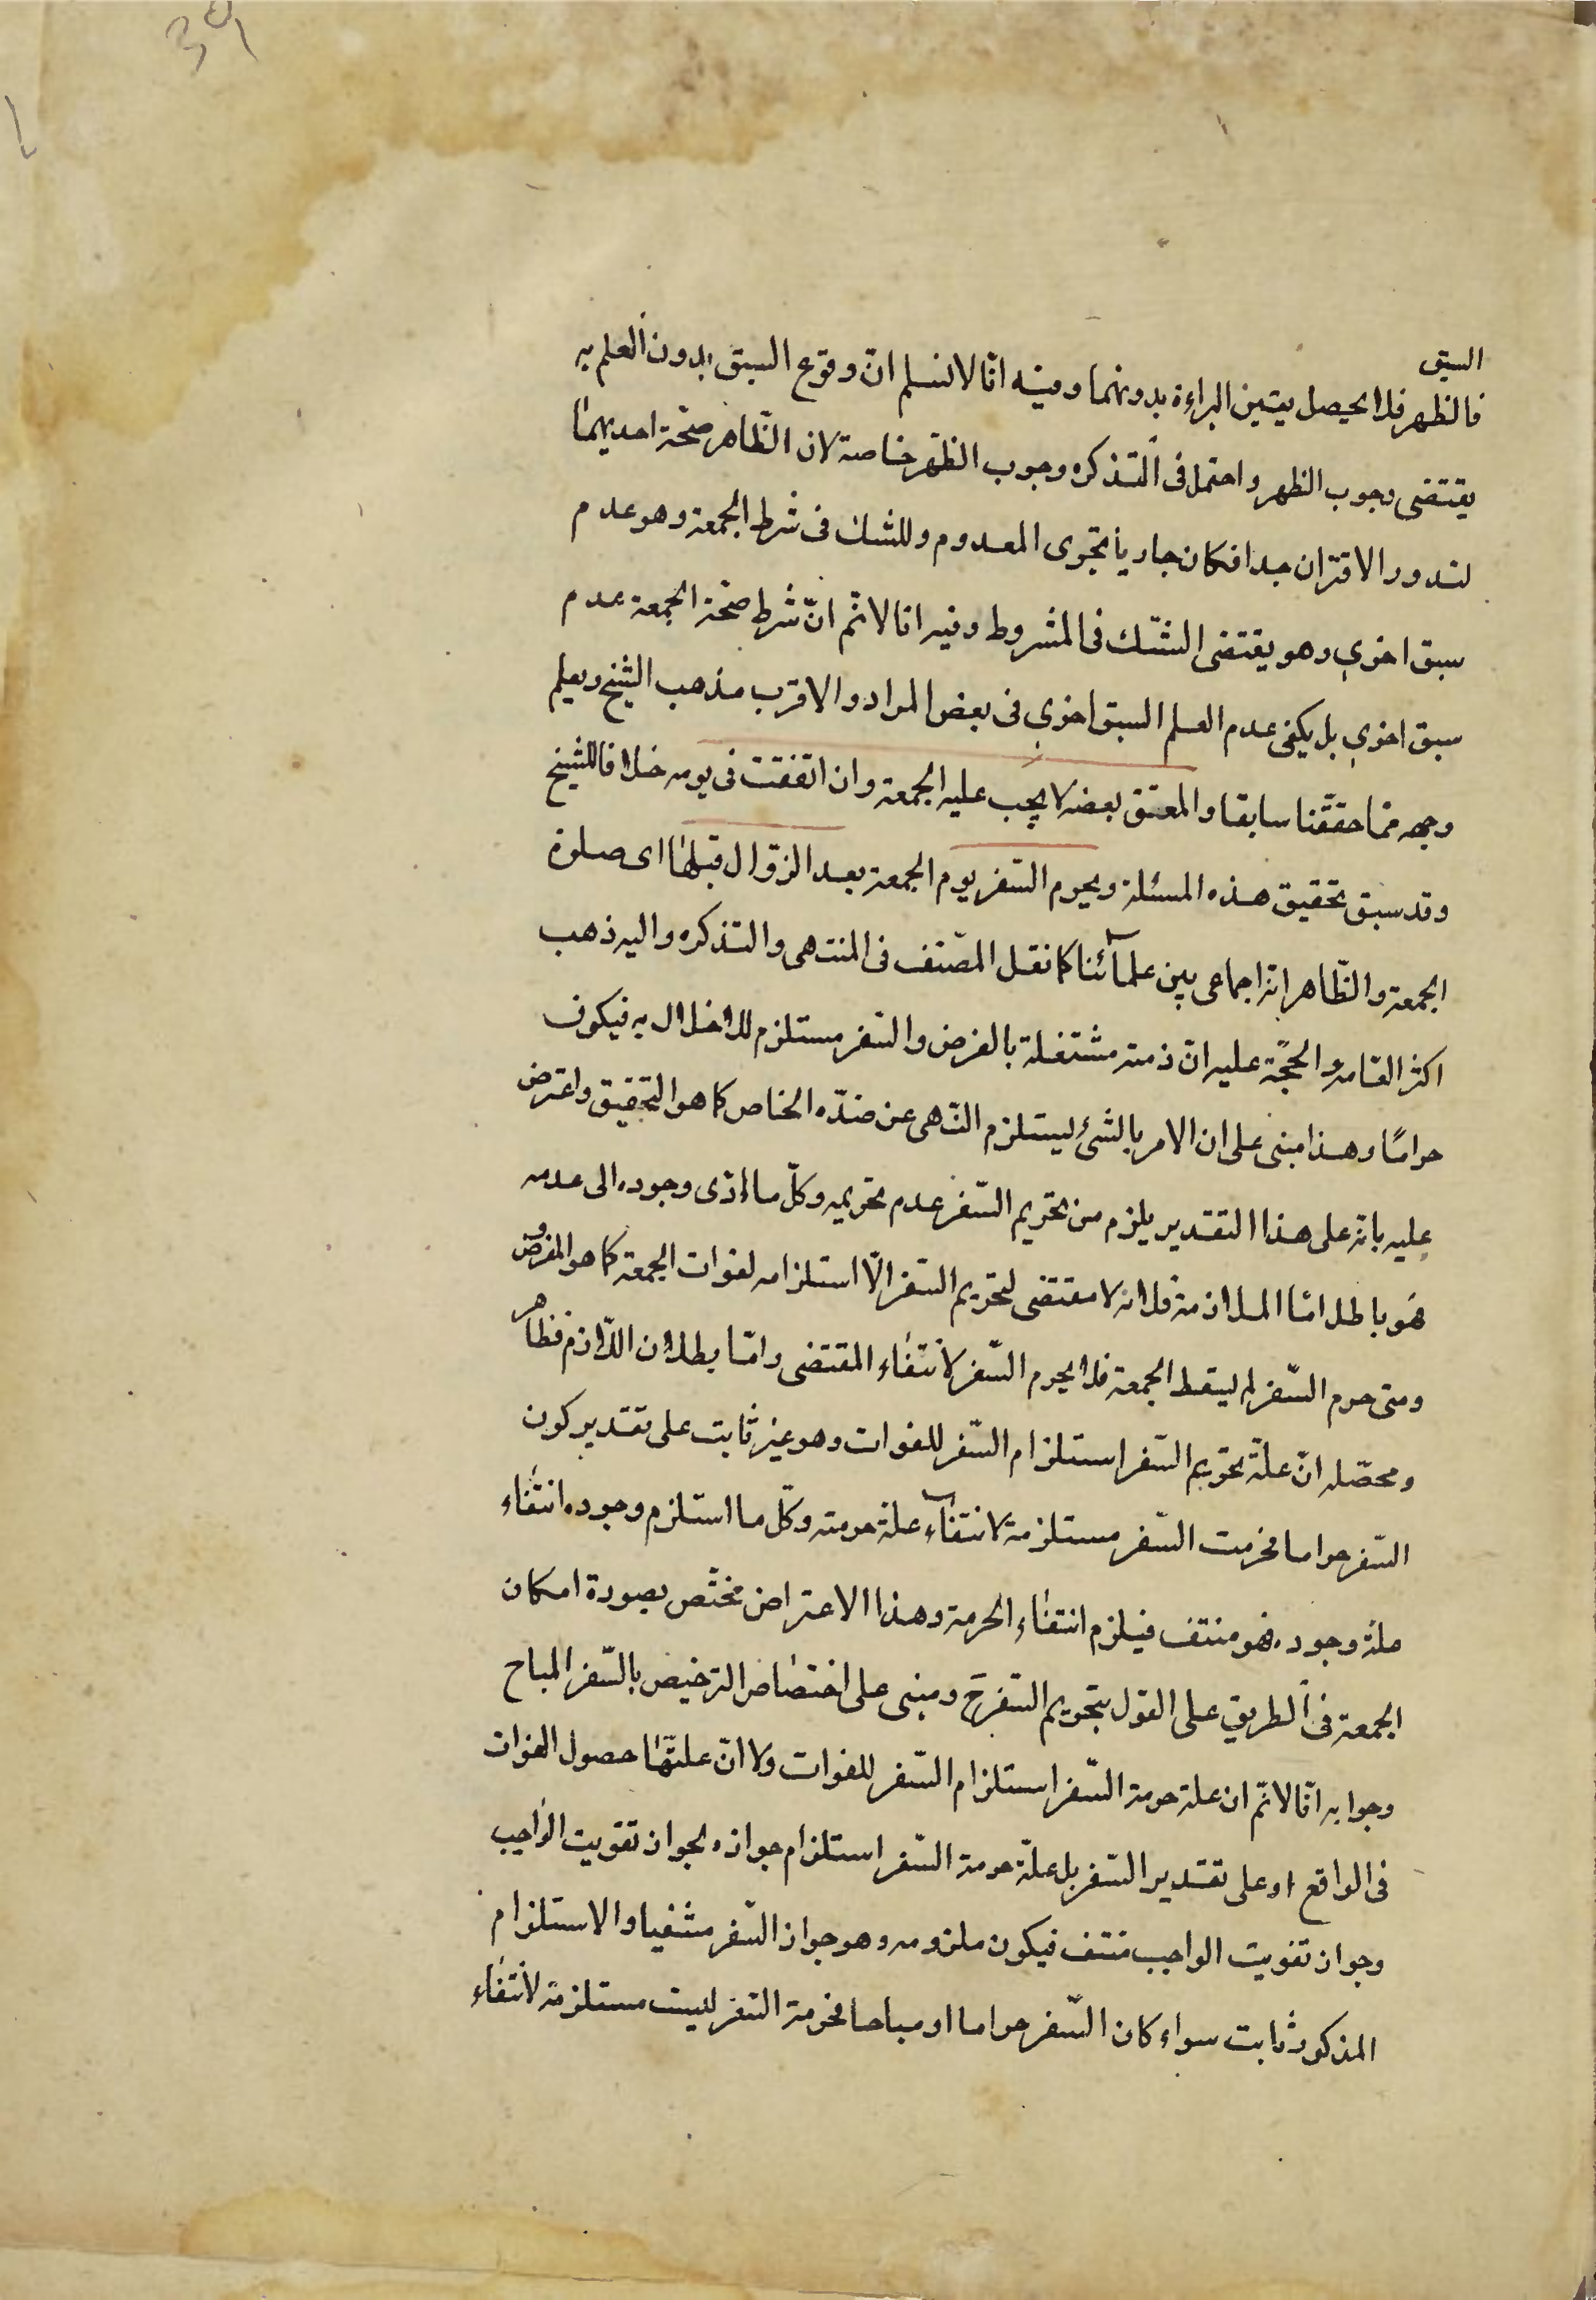 39
السبق
فالظهر فلا يحصل يتين البراءة بدونهما وفيه انّا لا نسلم انّ وقوع السبق بدون العلم به
يقتضى وجوب الظهر واحتمل فى التذكره وجوب الظهر خاصة لان الظّاهر صحّة احديهما
لندور الاقتران جدا فكان جاريا مجرى المعدوم وللشك فى شرط الجمعة وهو عدم
سبق اخرى وهو يقتضى الشّك فى المشروط وفيه انا لا نم انّ شرط صحّة الجمعة عدم
سبق اخرى بل يكفى عدم العلم السبق اخرى فى بعض المراد والاقرب مذهب الشيخ ويعلم
وجهه ممّا حققّنا سابقا والمعتق بعضه لا يجب عليه الجمعة وان اتفقت فى يومه خلافا للشيخ
وقد سبق تحقيق هذه المسئلة ويحرم السّفر يوم الجمعة بعد الزوّال قبلها اى صلوة
الجمعة والظّاهر انه اجماعى بين علمآئنا كما نقل المصّنف فى المنتهى والتذكره واليه ذهب
اكثر العّامه والحجّة عليه انّ ذمته مشتغلة بالفرض والسّفر مستلزم للاخلال به فيكون
حرامًا وهذا مبنى على ان الامر بالشئ يستلزم النّهى عن ضدّه الخاص كما هو التحقيق واعترض
عليه بانه على هذا التقدير يلزم من تحريم السّفر عدم تحريمه وكلّ ما ادّى وجوده الى عدمه
هو باطل امّا الملازمة فلانه لا مقتضى لتحريم السّفر الّا استلزامه لفوات الجمعة كما هو المفروض
ومتى حرم السّفر لم يسقط الجمعة فلا يحرم السّفر لانتفاء المقتضى وامّا بطلان اللّازم فظاهر
ومحصّله انّ علّة تحريم السّفر استلزام السّفر للفوات وهو غير ثابت على تقدير كون
السّفر حراما فحرمت السّفر مستلزمة لانتفآء علة حرمته وكلّ ما استلزم وجوده انتفاء
علة وجوده فهو منتف فيلزم انتفاء الحرمة وهذا الاعتراض مختّص بصورة امكان
الجمعة فى الطريق على القول بتحريم السّفر ح ومبنى على اختصاص الترخيص بالسّفر المباح
وجوابه انّا لا نم ان علة حرمة السّفر استلزام السّفر للفوات ولا انّ علتّها حصول الفوات
فى الواقع او على تقدير السّفر بل علّة حرمة السّفر استلزام جوازه لجواز تفويت الواجب
وجواز تفويت الواجب منتف فيكون ملزومه وهو جواز السّفر منتفيا والاستلزام
المذكور ثابت سواء كان السّفر حراما او مباحا فحرمة السّفر ليست مستلزمة لانتفاء